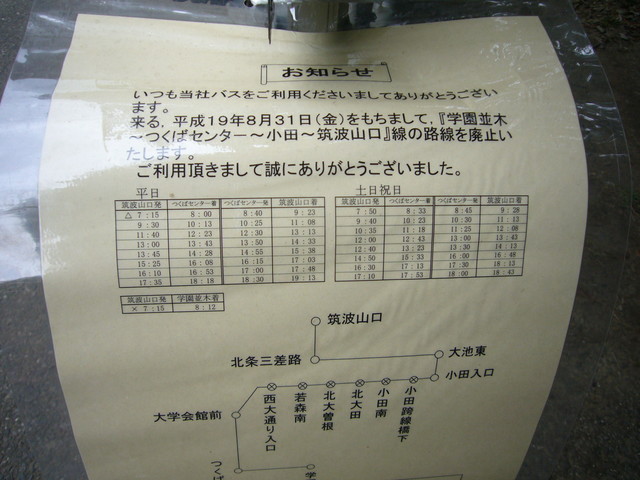 お知らせ
いつも当社バスをご利用くださいましてありがとうござい
ます。
来る、平成19年8月31日(金)をもちまして,『学園並木
～つくばセンター～小田～筑波山口』線の路線を廃止い
たします。
ご利用頂きまして誠にありがとうございました。
平日
筑波山口発 つくばセンター着 つくばセンター発 筑波山口着
△ 7:15 8:00 8:40 9:23
9:30 10:13 10:25 11:08
11:40 12:23 12:30 13:13
13:00 13:43 13:50 14:33
13:45 14:28 14:55 15:38
15:25 16:08 16:15 17:03
16:10 16:53 17:00 17:48
17:35 18:18 18:30 19:13
土日祝日
筑波山口発 つくばセンター着 つくばセンター発 筑波山口着
7:50 8:33 8:45 9:28
9:40 10:23 10:30 11:13
10:35 11:18 11:25 12:08
12:00 12:43 12:00 12:43
12:40 13:23 13:30 14:13
14:20 15:03 16:00 16:48
16:10 16:53 17:30 18:13
17:10 17:53 18:00 18:43
筑波山口発 学園並木着
× 7:15 8:12
筑波山口
北条三差路
大池東
小田入口
小田跨線橋下
小田南
北大田
北大曽根
若森南
西大通り入口
大学会館前
つくば
学